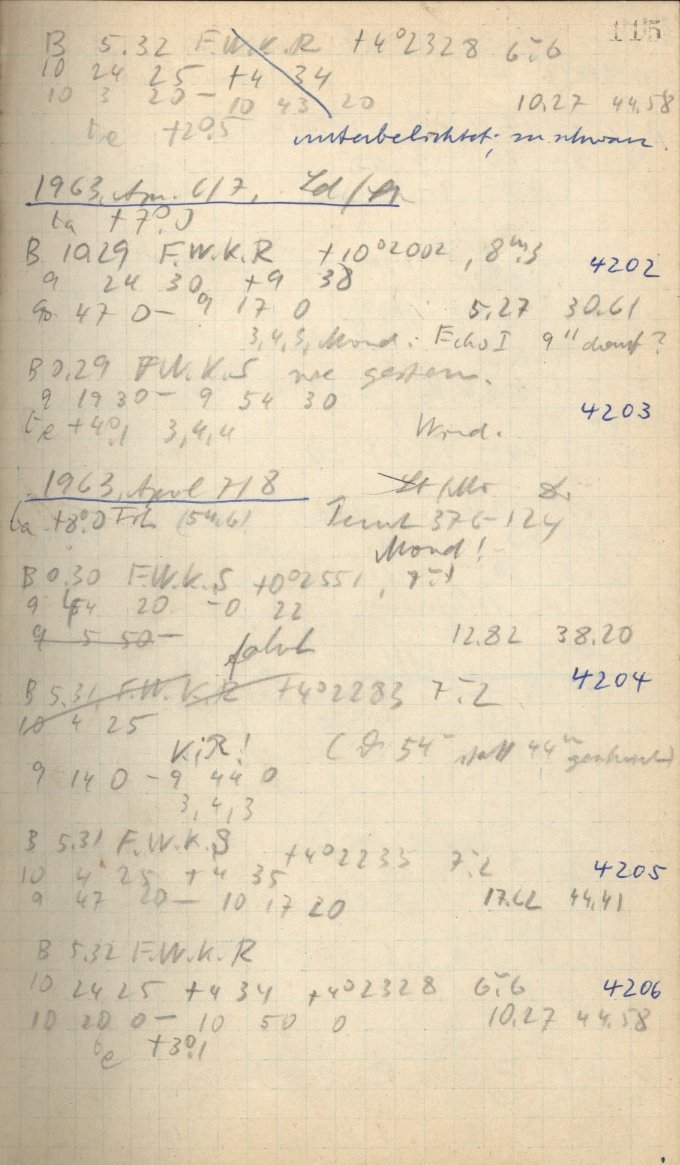 115
B 5.32 F.W.K.R +4°2328 6ᵐ6
10 24 25 +4 34
10 3 20 — 10 43 20 10.27 44.58
te +2°5 unterbelichtet, zu schwach
1963, Apr. 6/7,
ta +7°0
B 10.29 F.W.K.R +10°2002, 8ᵐ3 4202
9 24 30 +9 38
47 0 — 9 17 0 5.27 30.61
3,4,3, Mond. Echo I 9ʰ
B 0.29 F.W.K.S wie gestern.
9 19 30 — 9 54 30 4203
te +4°1 3,4,4 Wind.
1963, April 7/8
ta +8°0 376-124
Mond!
B 0.30 F.W.K.S +0°2551,
9 54 20 -0 22
9 5 50 — 12.82 38.20
falsch
B 5.31 F.W.K.R +4°2283 7ᵐ2 4204
10 4 25
KiR! 54ᵐ statt 44ᵐ
9 14 0 — 9 44 0
3,4,3
B 5.31 F.W.K.S +4°2233 7ᵐ2
10 4 25 +4 35 4205
9 47 20 — 10 17 20 17.62 44.41
B 5.32 F.W.K.R
10 24 25 +4 34 +4°2328 6ᵐ6 4206
10 20 0 — 10 50 0 10.27 44.58
te +3°1